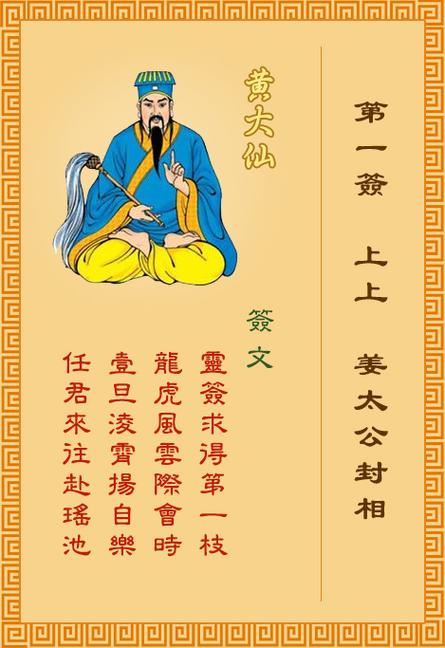 第一簽　上上　姜太公封相
黃大仙
簽文
靈簽求得第一枝
龍虎風雲際會時
壹旦淩霄揚自樂
任君來往赴瑤池